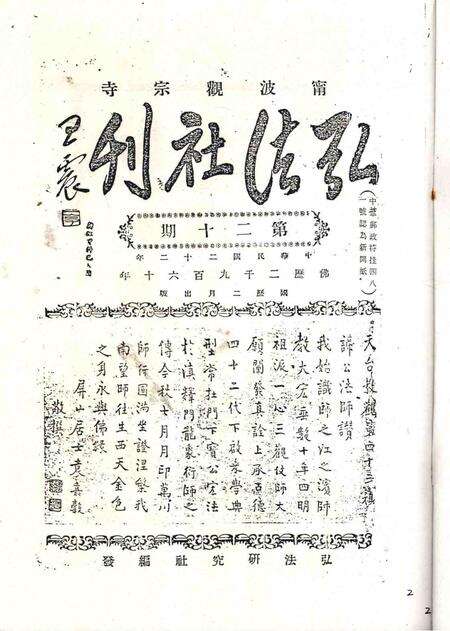 甯波觀宗寺
弘法社刊
王震
第二十期
中華民國二十二年
佛歷二千九百六十年
國歷二月出版
中華郵政特挂四八
一號認為新聞紙
天台教觀第四十三祖
諦公法師讚
我始識師之江之濱師
教大宏垂數十年四明
祖派一心三觀仗師大
願闡發真詮上承百德
四十二代下啟來學典
型常在門下寶公宏法
於滇釋門龍象衍師之
傳今秋七月月印萬川
師行圓滿坐證涅槃我
南望師往生西天金色
之身永興佛緣
屏山居士袁嘉穀
敬撰
弘法研究社編發
2
2